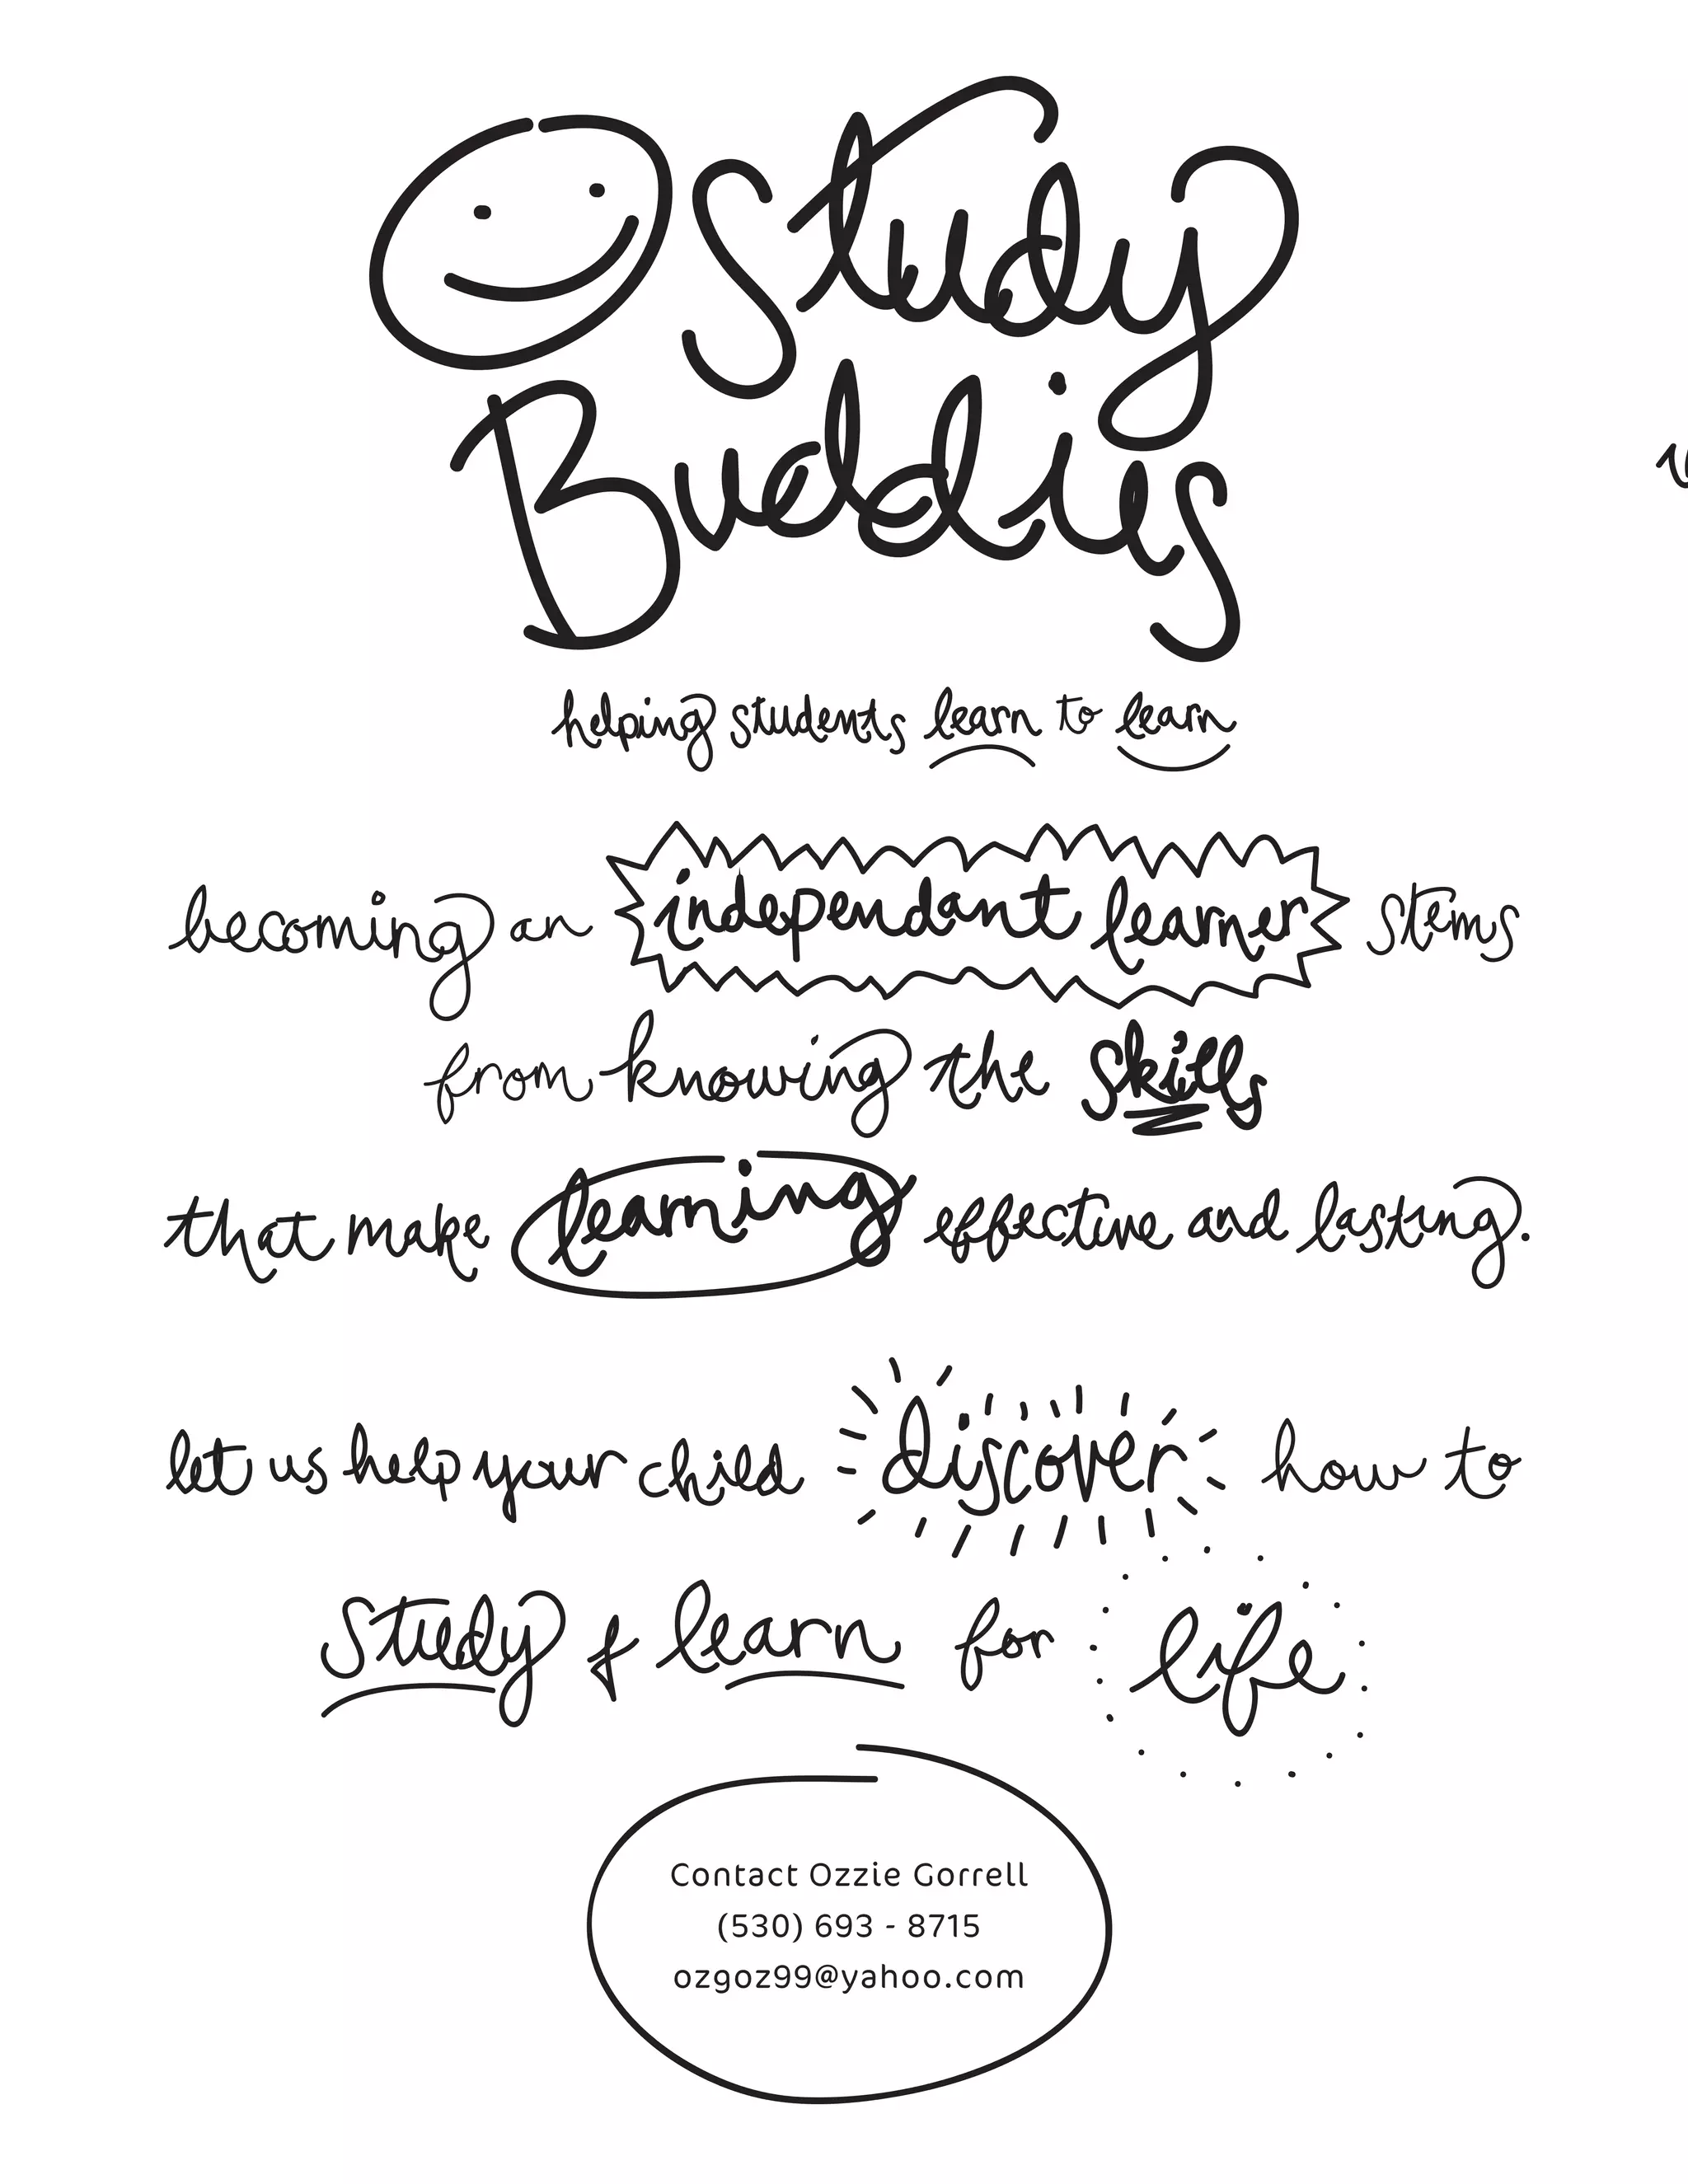 Study
Buddies
helping students learn to learn
becoming an independant learner stems
from knowing the skills
that make learning effective and lasting.
let us help your child discover how to
study & learn for life
Contact Ozzie Gorrell
(530) 693 - 8715
ozgoz99@yahoo.com